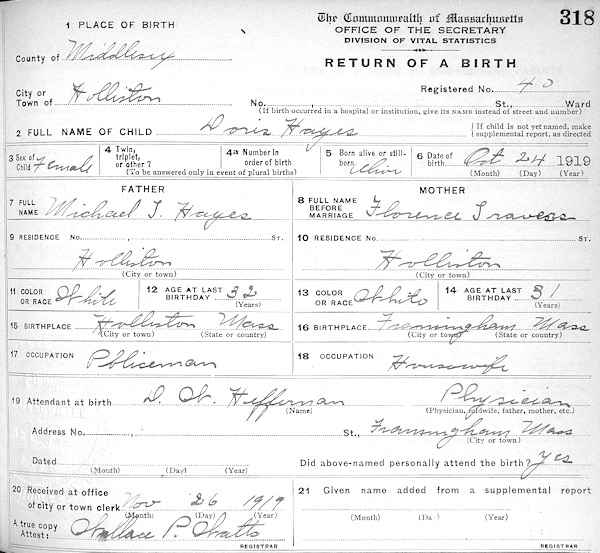 318
1 PLACE OF BIRTH
The Commonwealth of Massachusetts
OFFICE OF THE SECRETARY
DIVISION OF VITAL STATISTICS
RETURN OF A BIRTH
County of Middlesex
Registered No. 40
City or Town of Holliston
No. St., Ward
(If birth occurred in a hospital or institution, give its NAME instead of street and number)
2 FULL NAME OF CHILD Doris Hayes
If child is not yet named, make supplemental report, as directed
3 Sex of Child Female
4 Twin, triplet, or other?
4a Number in order of birth
(To be answered only in event of plural births)
5 Born alive or still-born Alive
6 Date of birth Oct 24 1919
(Month) (Day) (Year)
FATHER
MOTHER
7 FULL NAME Michael J. Hayes
8 FULL NAME BEFORE MARRIAGE Florence Travers
9 RESIDENCE No. ST.
Holliston
(City or town)
10 RESIDENCE No. ST.
Holliston
(City or town)
11 COLOR OR RACE White
12 AGE AT LAST BIRTHDAY 32
(Years)
13 COLOR OR RACE White
14 AGE AT LAST BIRTHDAY 31
(Years)
15 BIRTHPLACE Holliston Mass
(City or town) (State or country)
16 BIRTHPLACE Framingham Mass
(City or town) (State or country)
17 OCCUPATION Policeman
18 OCCUPATION Housewife
19 Attendant at birth D. W. Heffernan Physician
(Name) (Physician, midwife, father, mother, etc.)
Address No. St., Framingham Mass
(City or town)
Dated
(Month) (Day) (Year)
Did above-named personally attend the birth? Yes
20 Received at office of city or town clerk Nov 26 1919
(Month) (Day) (Year)
A true copy
Attest: Wallace P. Watts
REGISTRAR
21 Given name added from a supplemental report
(Month) (Day) (Year)
REGISTRAR